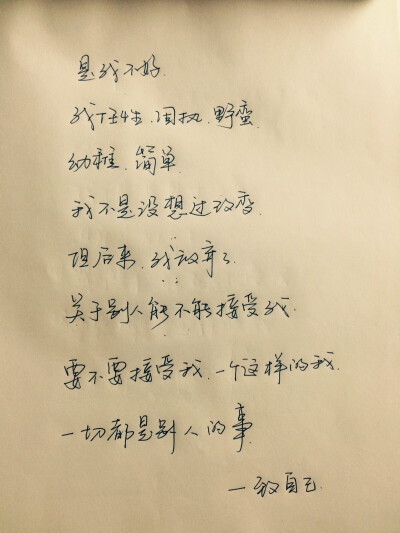 是我不好.
我任性.固执.野蛮
幼稚.简单
我不是没想过改变.
但后来.我放弃了
关于别人能不能接受我.
要不要接受我.一个这样的我.
一切都是别人的事
一致自己.